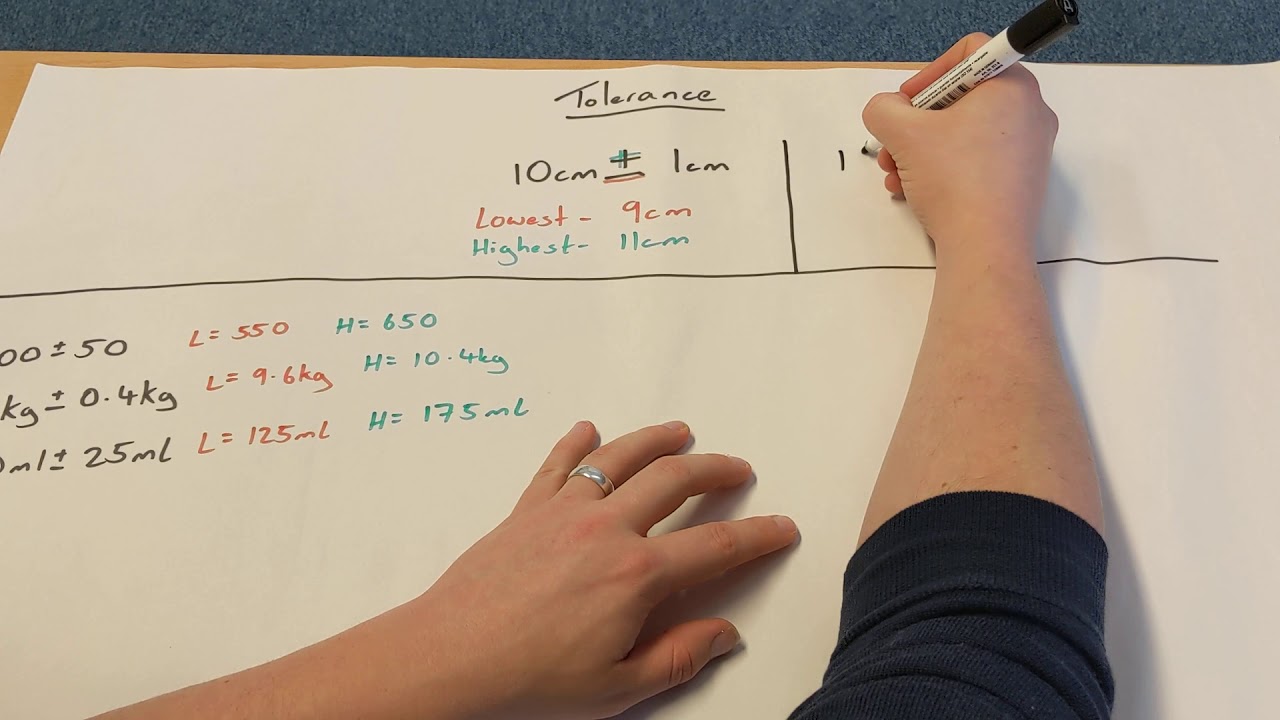 Tolerance
10cm ± 1cm
Lowest - 9cm
Highest - 11cm
1
00 ± 50 L= 550 H= 650
kg ± 0.4kg L= 9.6kg H= 10.4kg
0ml ± 25ml L= 125ml H= 175ml